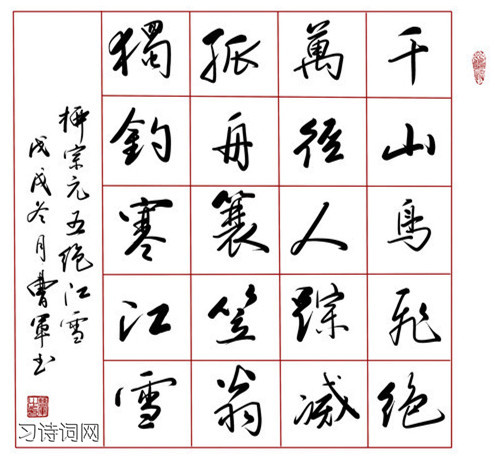 千山鳥飛絕
萬徑人踪滅
孤舟蓑笠翁
獨釣寒江雪
柳宗元五絕江雪
戊戌冬月曹軍书
习诗词网